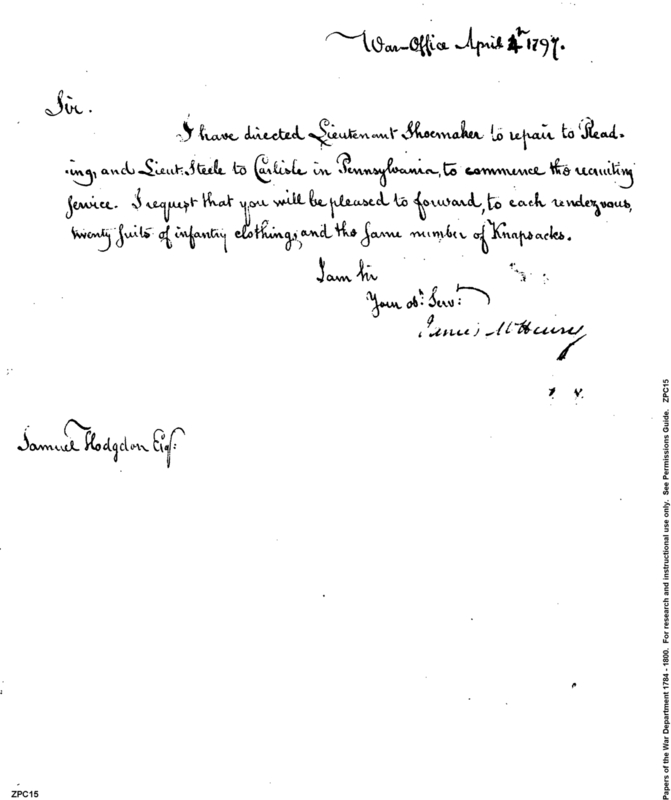 War-Office April 4th 1797.
Sir.
I have directed Lieutenant Shoemaker to repair to Read-
-ing, and Lieut. Steele to Carlisle in Pennsylvania, to commence the recruiting
service. I request that you will be pleased to forward, to each rendezvous,
twenty suits of infantry clothing, and the same number of Knapsacks.
I am Sir
Your obt. Servt.
James McHenry
Samuel Hodgdon Esqr.
ZPC15
Papers of the War Department 1784 - 1800. For research and instructional use only. See Permissions Guide. ZPC15